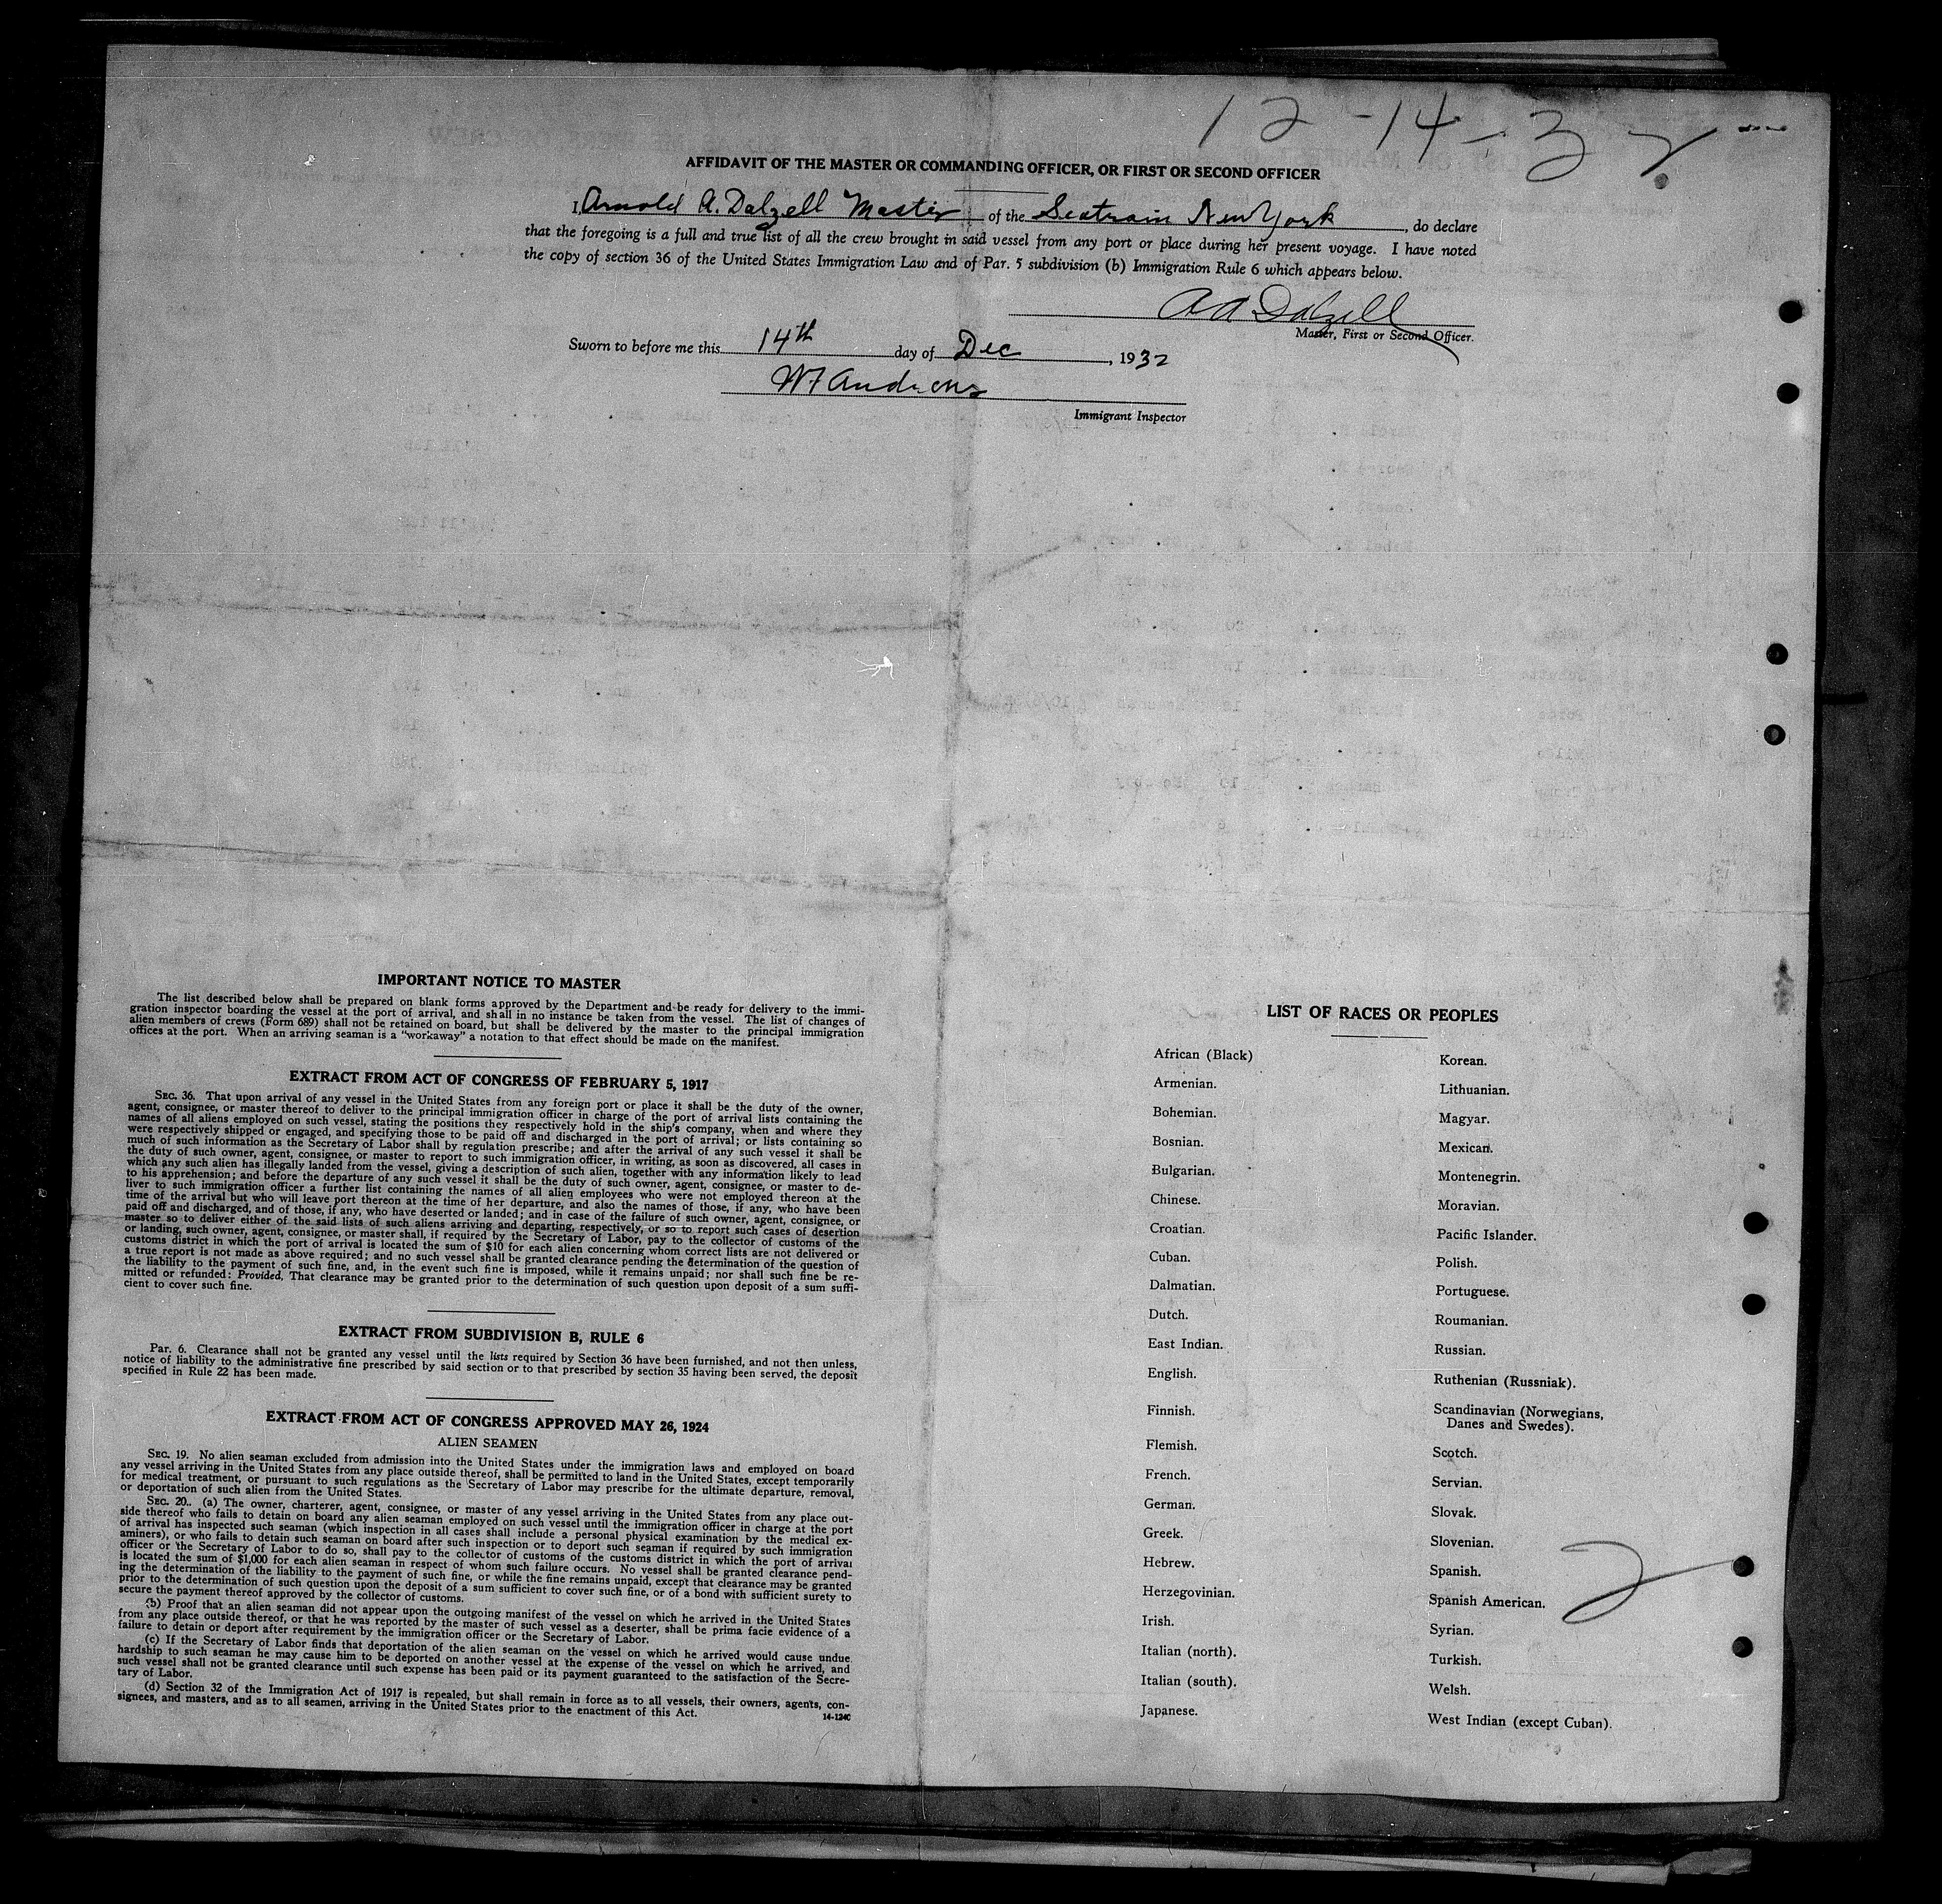 12-14-32
AFFIDAVIT OF THE MASTER OR COMMANDING OFFICER, OR FIRST OR SECOND OFFICER
I, Arnold A. Dalzell Master of the Seatrain New York, do declare
that the foregoing is a full and true list of all the crew brought in said vessel from any port or place during her present voyage. I have noted
the copy of section 36 of the United States Immigration Law and of Par. 5 subdivision (b) Immigration Rule 6 which appears below.
A A Dalzell
Master, First or Second Officer.
Sworn to before me this 14th day of Dec, 1932
W F Andrews
Immigrant Inspector
IMPORTANT NOTICE TO MASTER
The list described below shall be prepared on blank forms approved by the Department and be ready for delivery to the immi-
gration inspector boarding the vessel at the port of arrival, and shall in no instance be taken from the vessel. The list of changes of
alien members of crews (Form 689) shall not be retained on board, but shall be delivered by the master to the principal immigration
offices at the port. When an arriving seaman is a "workaway" a notation to that effect should be made on the manifest.
EXTRACT FROM ACT OF CONGRESS OF FEBRUARY 5, 1917
SEC. 36. That upon arrival of any vessel in the United States from any foreign port or place it shall be the duty of the owner,
agent, consignee, or master thereof to deliver to the principal immigration officer in charge of the port of arrival lists containing the
names of all aliens employed on such vessel, stating the positions they respectively hold in the ship's company, when and where they
were respectively shipped or engaged, and specifying those to be paid off and discharged in the port of arrival; or lists containing so
much of such information as the Secretary of Labor shall by regulation prescribe; and after the arrival of any such vessel it shall be
the duty of such owner, agent, consignee, or master to report to such immigration officer, in writing, as soon as discovered, all cases in
which any such alien has illegally landed from the vessel, giving a description of such alien, together with any information likely to lead
to his apprehension; and before the departure of any such vessel it shall be the duty of such owner, agent, consignee, or master to de-
liver to such immigration officer a further list containing the names of all alien employees who were not employed thereon at the
time of the arrival but who will leave port thereon at the time of her departure, and also the names of those, if any, who have been
paid off and discharged, and of those, if any, who have deserted or landed; and in case of the failure of such owner, agent, consignee, or
master so to deliver either of the said lists of such aliens arriving and departing, respectively, or so to report such cases of desertion
or landing, such owner, agent, consignee, or master shall, if required by the Secretary of Labor, pay to the collector of customs of the
customs district in which the port of arrival is located the sum of $10 for each alien concerning whom correct lists are not delivered or
a true report is not made as above required; and no such vessel shall be granted clearance pending the determination of the question of
the liability to the payment of such fine, and, in the event such fine is imposed, while it remains unpaid; nor shall such fine be re-
mitted or refunded: Provided, That clearance may be granted prior to the determination of such question upon deposit of a sum suffi-
cient to cover such fine.
EXTRACT FROM SUBDIVISION B, RULE 6
Par. 6. Clearance shall not be granted any vessel until the lists required by Section 36 have been furnished, and not then unless,
notice of liability to the administrative fine prescribed by said section or to that prescribed by section 35 having been served, the deposit
specified in Rule 22 has been made.
EXTRACT FROM ACT OF CONGRESS APPROVED MAY 26, 1924
ALIEN SEAMEN
SEC. 19. No alien seaman excluded from admission into the United States under the immigration laws and employed on board
any vessel arriving in the United States from any place outside thereof, shall be permitted to land in the United States, except temporarily
for medical treatment, or pursuant to such regulations as the Secretary of Labor may prescribe for the ultimate departure, removal,
or deportation of such alien from the United States.
SEC. 20. (a) The owner, charterer, agent, consignee, or master of any vessel arriving in the United States from any place out-
side thereof who fails to detain on board any alien seaman employed on such vessel until the immigration officer in charge at the port
of arrival has inspected such seaman (which inspection in all cases shall include a personal physical examination by the medical ex-
aminers), or who fails to detain such seaman on board after such inspection or to deport such seaman if required by such immigration
officer or the Secretary of Labor to do so, shall pay to the collector of customs of the customs district in which the port of arrival
is located the sum of $1,000 for each alien seaman in respect of whom such failure occurs. No vessel shall be granted clearance pend-
ing the determination of the liability to the payment of such fine, or while the fine remains unpaid, except that clearance may be granted
prior to the determination of such question upon the deposit of a sum sufficient to cover such fine, or of a bond with sufficient surety to
secure the payment thereof approved by the collector of customs.
(b) Proof that an alien seaman did not appear upon the outgoing manifest of the vessel on which he arrived in the United States
from any place outside thereof, or that he was reported by the master of such vessel as a deserter, shall be prima facie evidence of a
failure to detain or deport after requirement by the immigration officer or the Secretary of Labor.
(c) If the Secretary of Labor finds that deportation of the alien seaman on the vessel on which he arrived would cause undue
hardship to such seaman he may cause him to be deported on another vessel at the expense of the vessel on which he arrived, and
such vessel shall not be granted clearance until such expense has been paid or its payment guaranteed to the satisfaction of the Secre-
tary of Labor.
(d) Section 32 of the Immigration Act of 1917 is repealed, but shall remain in force as to all vessels, their owners, agents, con-
signees, and masters, and as to all seamen, arriving in the United States prior to the enactment of this Act.
14-1240
LIST OF RACES OR PEOPLES
African (Black)
Armenian.
Bohemian.
Bosnian.
Bulgarian.
Chinese.
Croatian.
Cuban.
Dalmatian.
Dutch.
East Indian.
English.
Finnish.
Flemish.
French.
German.
Greek.
Hebrew.
Herzegovinian.
Irish.
Italian (north).
Italian (south).
Japanese.
Korean.
Lithuanian.
Magyar.
Mexican.
Montenegrin.
Moravian.
Pacific Islander.
Polish.
Portuguese.
Roumanian.
Russian.
Ruthenian (Russniak).
Scandinavian (Norwegians,
Danes and Swedes).
Scotch.
Servian.
Slovak.
Slovenian.
Spanish.
Spanish American.
Syrian.
Turkish.
Welsh.
West Indian (except Cuban).
2